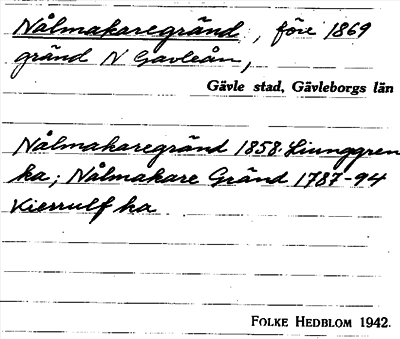 Nålmakaregränd, före 1869
gränd N Gavleån,
Gävle stad, Gävleborgs län
Nålmakaregränd 1858 Ljunggren
ka; Nålmakare Gränd 1787-94
Kierrulf ka
FOLKE HEDBLOM 1942.